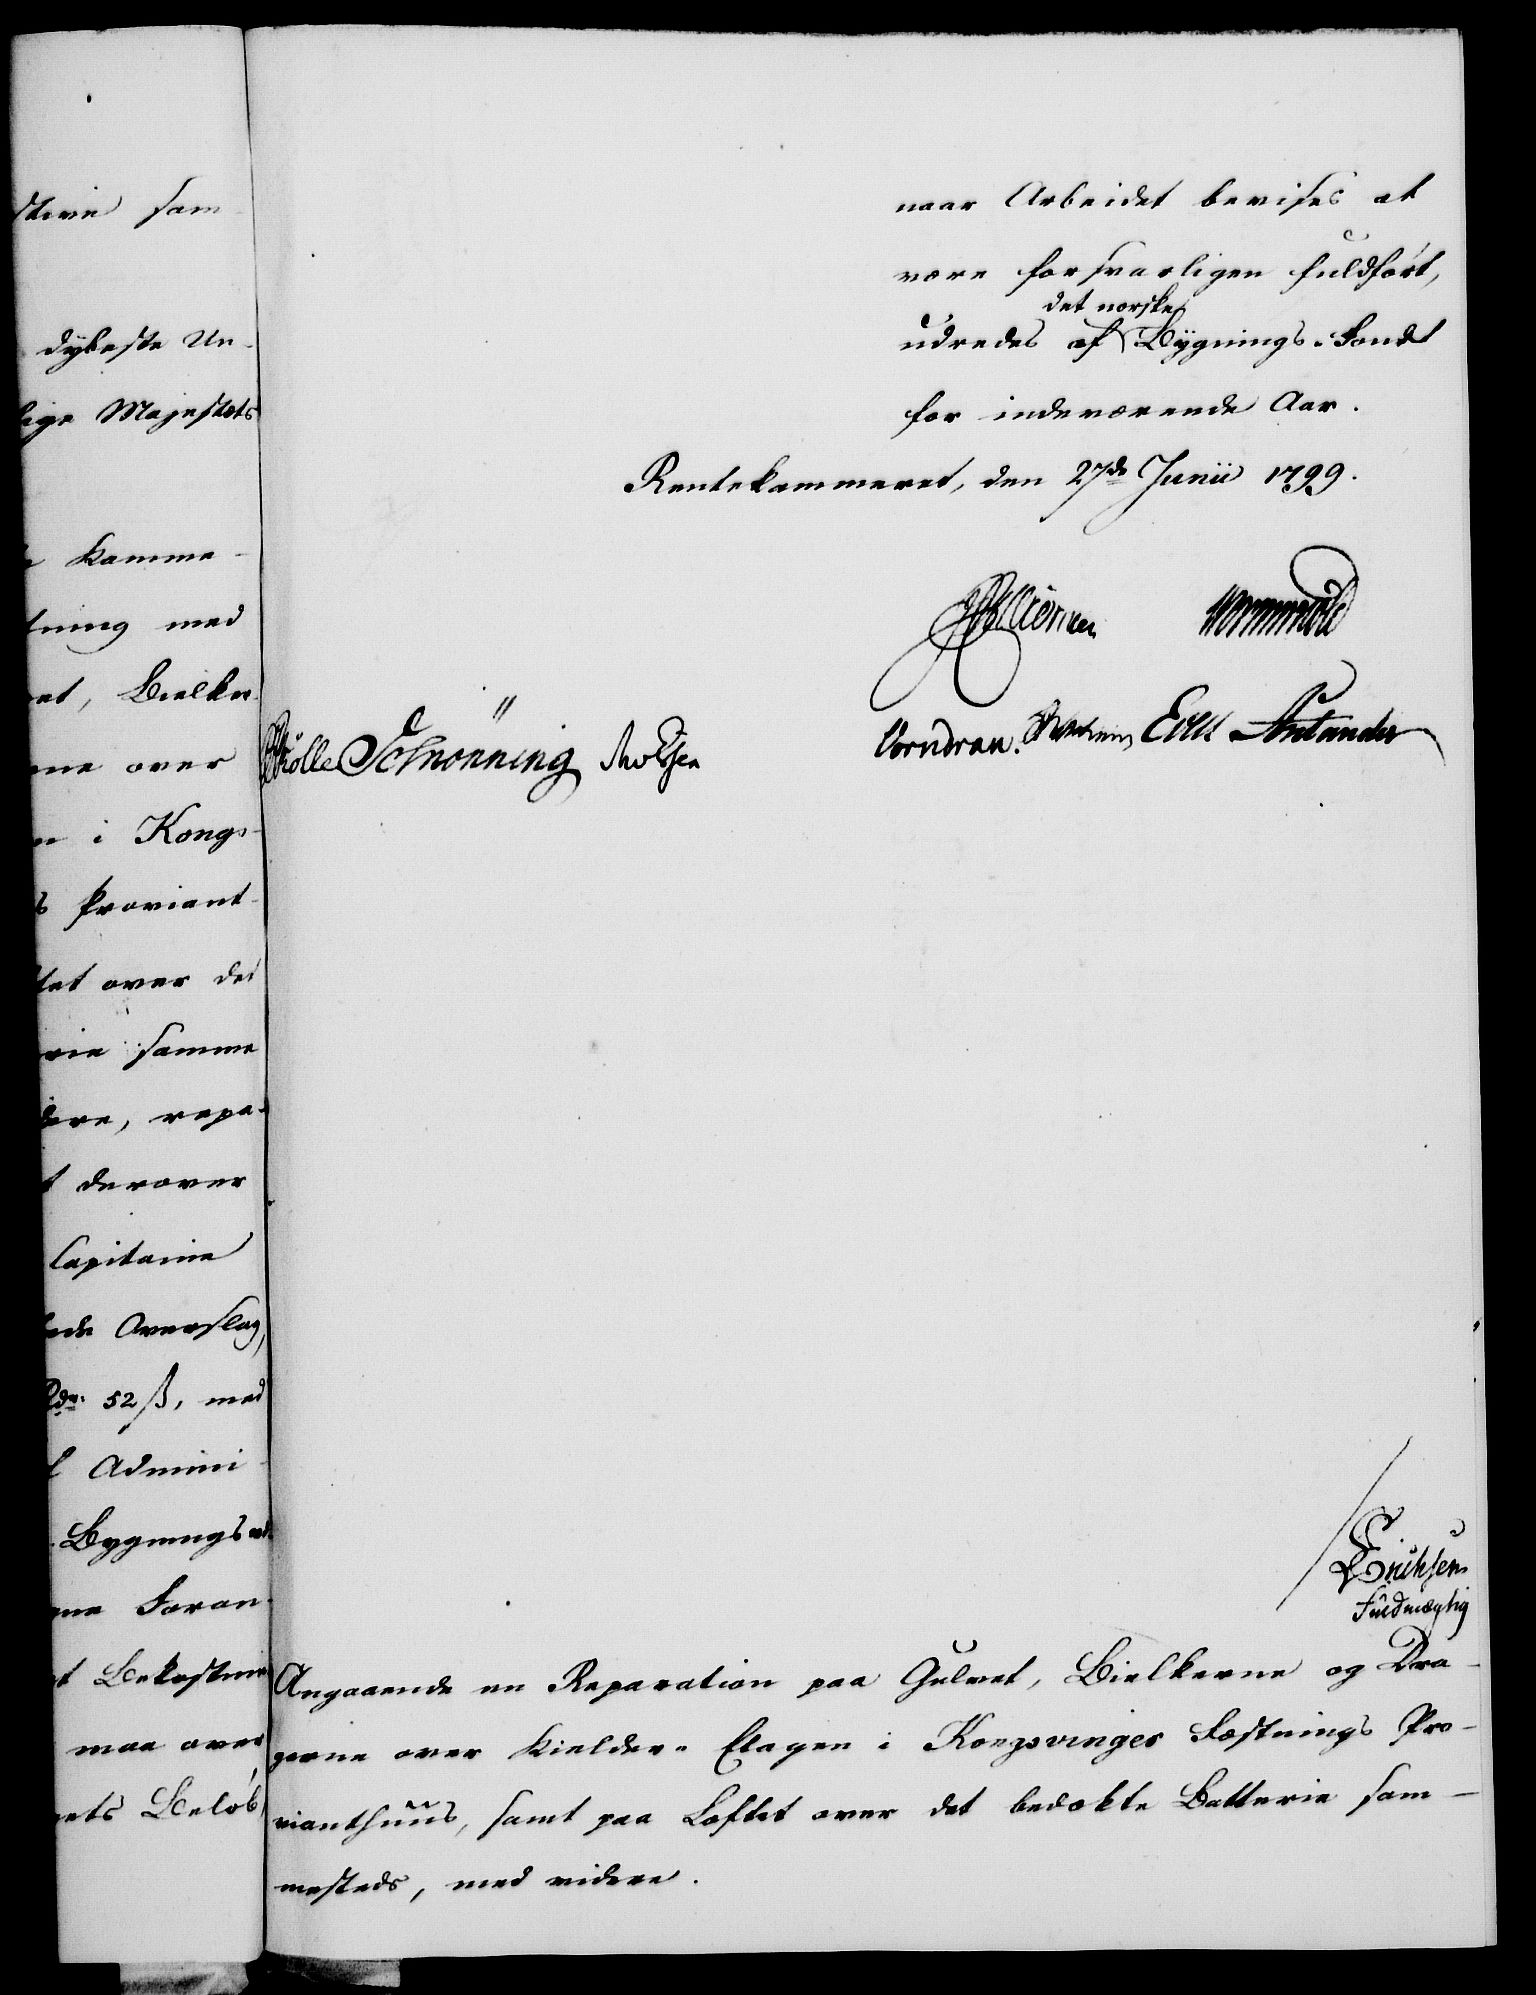 sterie sam-
dybeste Un-
lige Majestæts
Kamme-
tning med
et, Bielker-
ne over
n i Kongs-
s Proviant-
tet over det
rie samme
dere, repa-
t derover
Capitaine
ede Overslag,
Rdr. 52 ß, med
l Admini-
Bygnings
ne Foran-
t Bekostnin
maa over
ets Beløb,
naar Arbeidet bevises at
være forsvarligen fuldført,
det norske
udredes af Bygnings-Fondt
for indeværende Aar.
Rentekammeret, den 27de Junii 1799.
Wormskiold
Schnønning
Vorndran. Eeg Lutander
Erichsen
Fuldmægtig
Angaaende en Reparation paa Gulvet, Bielkerne og Dra-
gerne over Kielder-Etagen i Kongsvinger Fæstnings Pro-
vianthuus, samt paa Loftet over det bedækte Batterie sam-
mesteds, med videre.